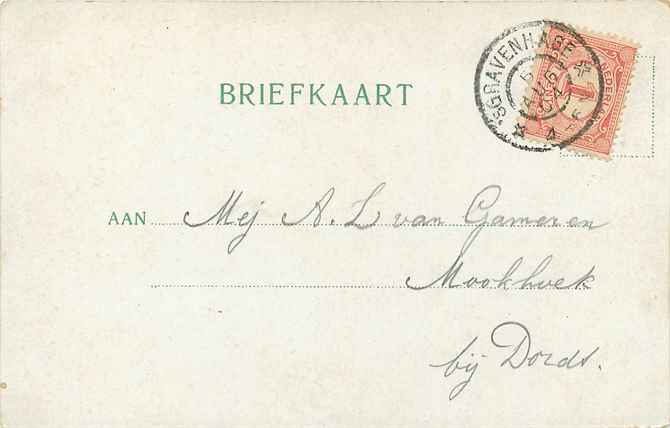 'SGRAVENHAGE
NEDERLAND
1
BRIEFKAART
AAN Mej A. L van Gameren
Mookhoek
bij Dordt.